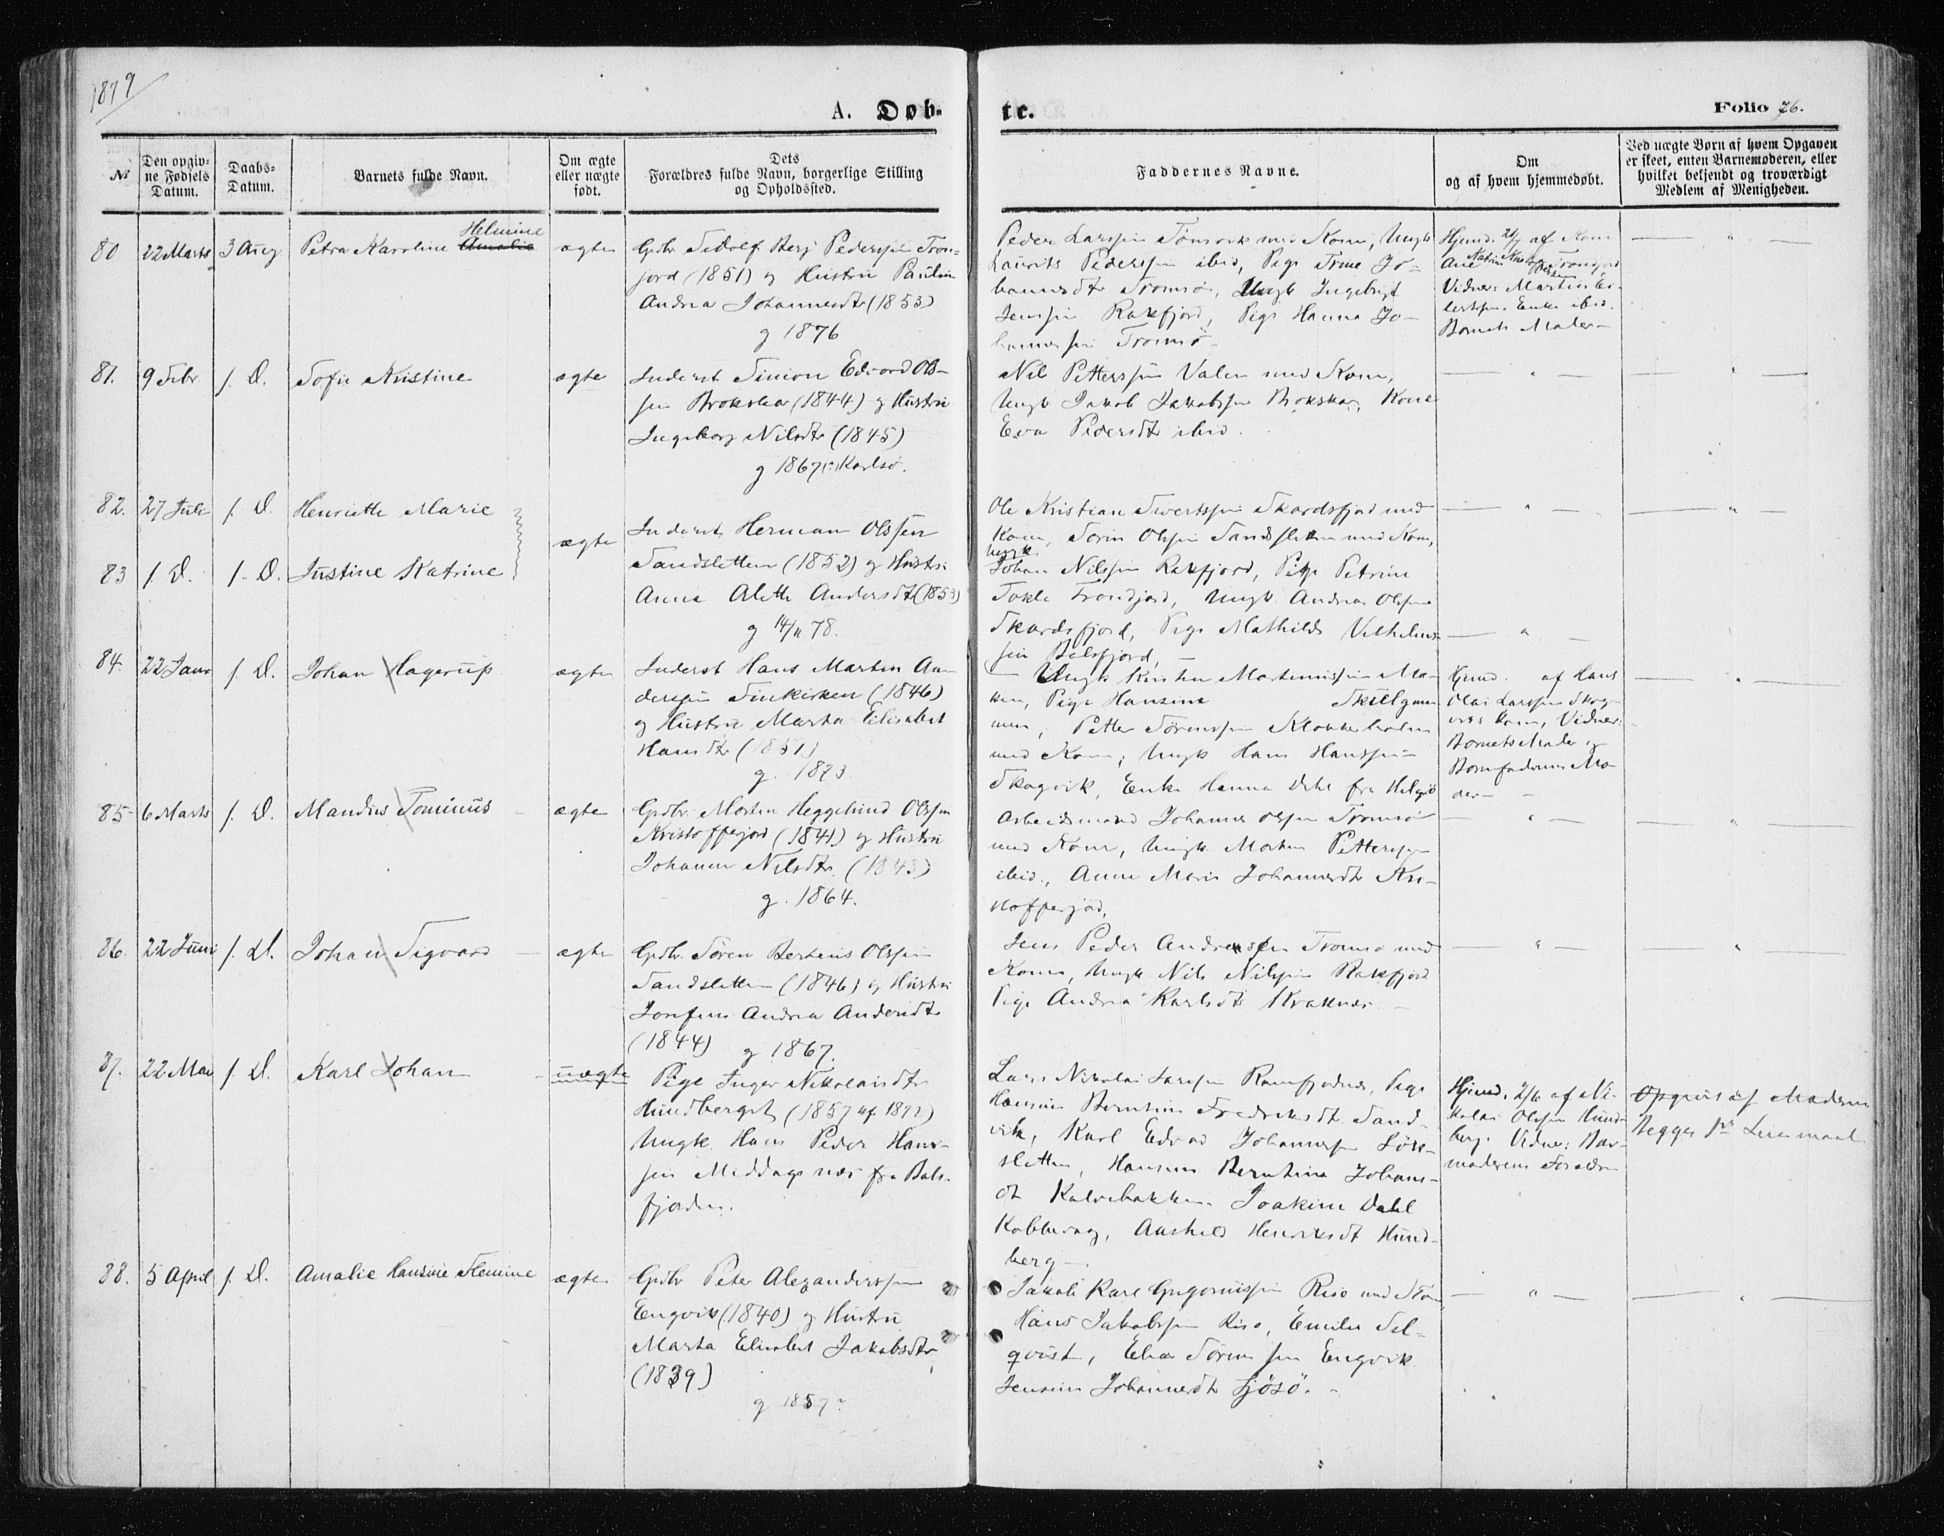 1879
A. Døb-
te.
Folio 76.
№
Den opgiv-
ne Fødsels
Datum.
Daabs-
Datum.
Barnets fulde Navn.
Om ægte
eller uægte
født.
Dets
Forældres fulde Navn, borgerlige Stilling
og Opholdssted.
Faddernes Navne.
Om
og af hvem hjemmedøbt.
Ved uægte Børn af hvem Opgaven
er skeet, enten Barnemoderen, eller
hvilket bekjendt og troværdigt
Medlem af Menigheden.
80
22 Marts
3 Aug
Helmine
Petra Karoline Amalie
ægte
Gdbr. Sidolf Berg Pederssen Tron-
fjord (1851) og Hustru Pauline
Andrea Johannesdtr (1853)
g 1876
Peder Larssen Tønsvik med Kone, Ungk
Laurits Pederssen ibid, Pige Trine Jo-
hannesdtr Tromsø, Ungk Ingebrigt
Jenssen Rakfjord, Pige Hanna Jo-
hannessen Tromsø
Hjemd. af Kone
Ane
Vidner: Martin
Enke ibid.
Barnets Moder
81.
9 Febr
s. D.
Sofie Kristine
ægte
Inderst Simon Edvard Ols-
sen Brokskar (1844) og Hustru
Ingeborg Nilsdtr (1845)
g 1867 i Karlsø.
Nils Petterssen Valen med Kone,
Ungk Jakob Jakobssen Brokskar, Kone
Eva Pedersdtr ibid.
82.
27 Juli
s. D.
Henriette Marie
83
s. D.
s. D.
Justine Katrine
ægte
Inderst Herman Olssen
Sandsletten (1852) og Hustru
Anna Aleth Andersdtr (1853)
g 14/11 78.
Ole Kristian Sivertssen Skardsfjord med
Kone, Sørin Olssen Sandsletten med Kone,
Ungk.
Johan Nilssen Rakfjord, Pige Petrine
Tokle Trondjord, Ungk. Andreas Olssen
Skardsfjord, Pige Mathilde Vilhelms-
sen Balsfjord,
84.
22 Janr
s. D.
Johan Hagerup
ægte
Inderst Hans Martin An-
derssen Finkirken (1846)
og Hustru Marta Elisabet
Hansdtr (1851)
g. 1873
Ungk Kirsten Martinussen Ma-
ken, Pige Hansine Skillgam-
men, Petter Sørenssen
med Kone, Ungk Hans Hanssen
Skogvik, Enke Hanna Dahl fra Helgø
Hjemd. af Hans
Olai Larssen Skog-
viks Kone, Vidner:
Barnets Moder og
Barnfaderens Mo-
der
85
6 Marts
s. D.
Mandus Tominus
ægte
Gdbr. Morten Heggelund Olssen
Kristofferjord (1841) og Hustru
Johanne Nilsdtr (1843)
g. 1864.
Arbeidsmand Johannes Olssen Tromsø
med Kone, Ungk. Morten Petterssen
ibid., Anne Marie Johannesdtr Kri-
stofferjord,
86.
22 Juni
s. D.
Johan Sigvard
ægte
Gdbr. Søren Bertens Olssen
Sandsletten (1846) og Hustru
Josefine Andrea Andersdtr
(1844) g 1867.
Jens Peder Andreassen Tromsø med
Kone, Ungk Nils Nilssen Rakfjord
Pige Andrea Karlsdtr Kraknes.
87.
22 Mai
s. D.
Karl Johan
uægte
Pige Inger Nikolaisdtr
Hundberget (1857 af 1872)
Ungk Hans Peder Hans-
sen Middagsnes fra Bals-
fjorden.
Lars Nikolai Larssen Ramfjordnes, Pige
Hansine Berntine Fredriksdtr Sand-
vik, Karl Edvard Johannessen Løv-
sletten, Hansine Berntine Johans-
dt Kalvebakken, Joakim Dahl
Kobbevag, Aashild Henriksdt Hund-
berg.
Hjemd. 2/6 af Ni-
kolai Olssen Hund-
berg. Vidner: Bar-
moderens Forældre
Opgivet af Moderen
Begges 1ste Leiermaal
88.
5 April
s. D.
Amalie Hansine Flemine
ægte
Gdbr Peter Alexanderssen
Engvik (1840) og Hustru
Marta Elisabet Jakobsdtr
(1839)
g 1857?
Jakob Karl Gregoriussen Risø med Kone
Hans Jakobssen Risø, Emilie Sel-
qvist, Elias Sørenssen Engvik
Jensine Johannesdtr Tjøsø.